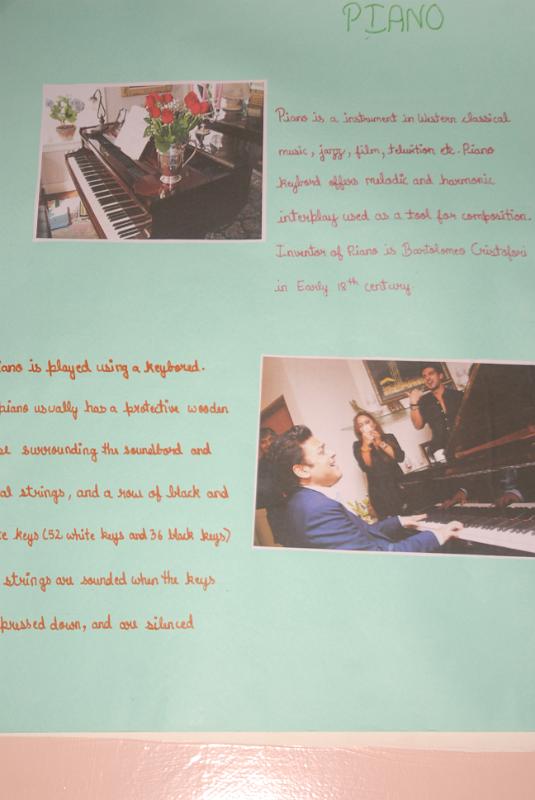 PIANO
Piano is a instrument in Western classical
music, jazz, film, television etc. Piano
keybord offers melodic and harmonic
interplay used as a tool for composition.
Inventor of Piano is Bartolomeo Cristofori
in Early 18th century
iano is played using a keybored.
piano usually has a protective wooden
se surrounding the soundbord and
al strings, and a row of black and
te keys (52 white keys and 36 black keys)
strings are sounded when the keys
pressed down, and are silenced